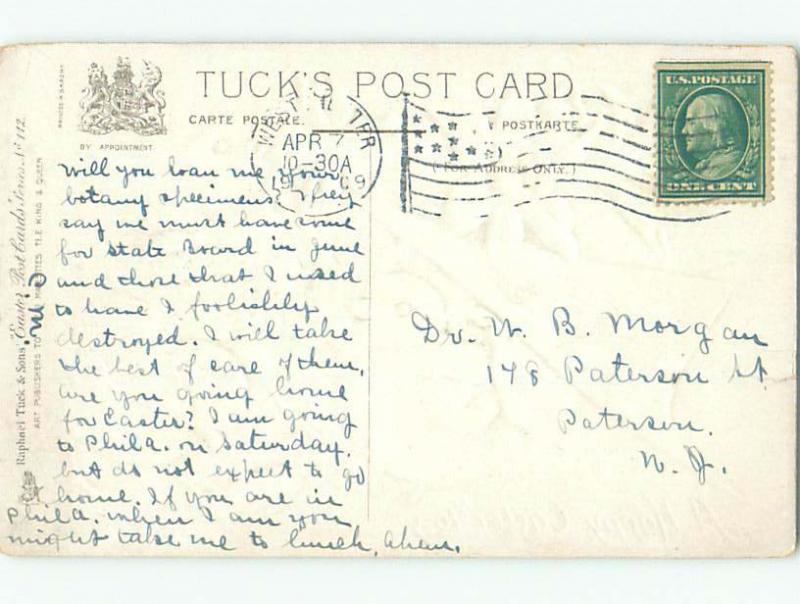 TUCK'S POST CARD
CARTE POSTALE.
POSTKARTE
(FOR ADDRESS ONLY.)
BY APPOINTMENT
U.S. POSTAGE
ONE CENT
APR 7
10-30A
1909
Raphael Tuck & Sons' "Easter" Post Cards Series No. 112.
ART PUBLISHERS TO THEIR MAJESTIES THE KING & QUEEN
Will you loan me your
botany specimens? They
say we must have some
for state board in June
and those that I used
to have I foolishly
destroyed. I will take
the best of care of them.
Are you going home
for Easter? I am going
to Phila. on Saturday,
but do not expect to go
home. If you are in
Phila. when I am you
might take me to lunch, ahem.
Dr. W. B. Morgan
148 Paterson St.
Paterson.
N. J.